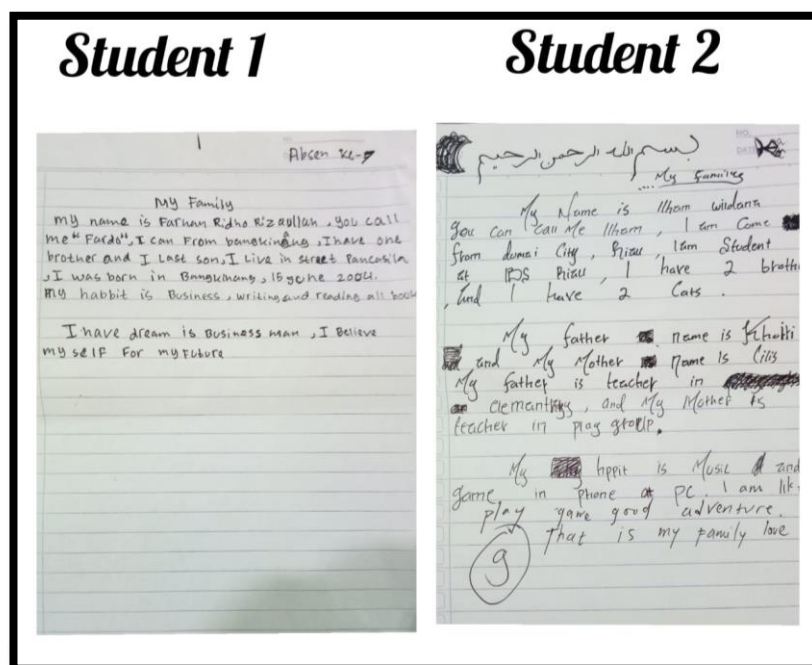 Student 1
Absen ke-7
My Family
my name is Farhan Ridho Rizqullah, you call
me "Fardo", I can From bangkinang, I have one
brother and I Last son, I Live in street Pancasila
, I was born in Bangkinang, 15 june 2004.
my habbit is Business, writing and reading all book
I have dream is Business man, I Believe
my selF For my Future
Student 2
NO.
DATE
بسم الله الرحمن الرحيم
.... My Families
My Name is Ilham wildana
you can call Me Ilham, I am Come
from dumai City, Riau, I am Student
at PDS Riau, I have 2 broth
, and I have 2 Cats.
My father name is
and My Mother name is Lilis
My father is teacher in
elemantry, and My Mother is
teacher in play group.
My hppit is Music and
game in phone or PC. I am lik
play game good adventure.
that is my family love
9